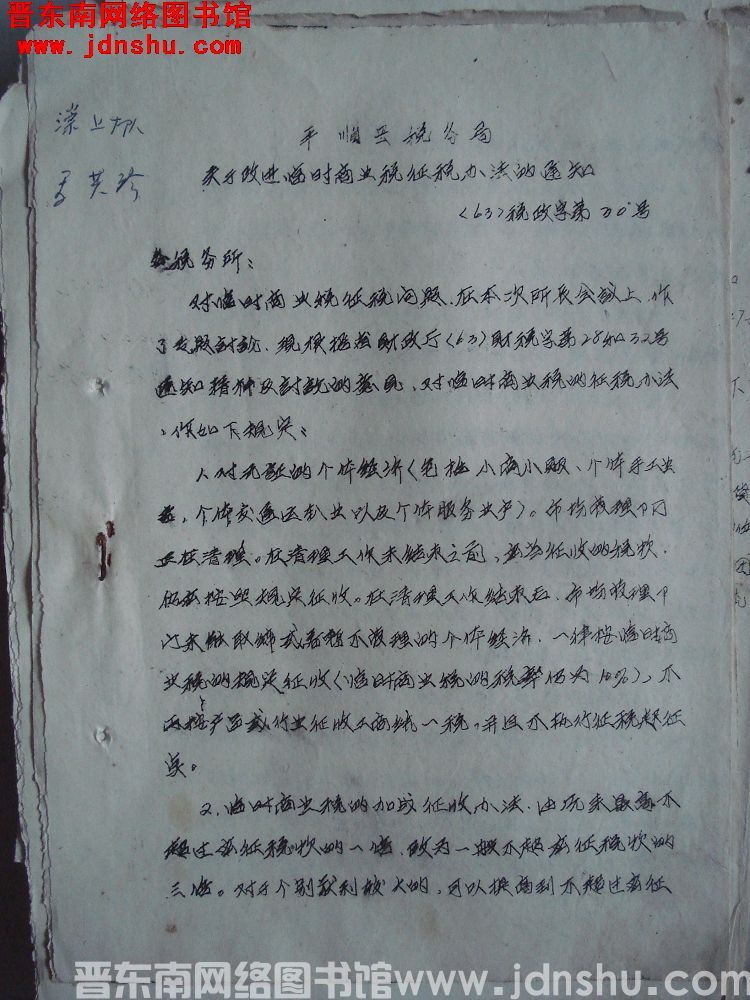 晋东南网络图书馆
www.jdnshu.com
平顺县税务局
关于改进临时商业税征税办法的通知
〈63〉税政字第30号
税务所：
对临时商业税征税问题，在本次所长会议上，作
了专题讨论，现根据省财政厅〈63〉财税字第28和32号
通知精神及讨论的意见，对临时商业税的征税办法
，作如下规定：
1、对无证的个体经济（包括小商小贩、个体手工业
者，个体交通运输业以及个体服务业户）。市场管理部门
正在清理。在清理工作未结束之前，应当征收的税款，
仍应按照规定征收。在清理工作结束后，市场管理部
门未做取缔或者暂不管理的个体经济，一律按临时商
业税的规定征收（临时商业税的税率仍为10%），不
再按产品或行业征收工商统一税，并且不执行征税起征
点。
2、临时商业税的加成征收办法，由原来最高不
超过应征税款的一倍，改为一般不超应征税款的
三倍。对于个别获利较大的，可以提高到不超过应征
晋东南网络图书馆www.jdnshu.com